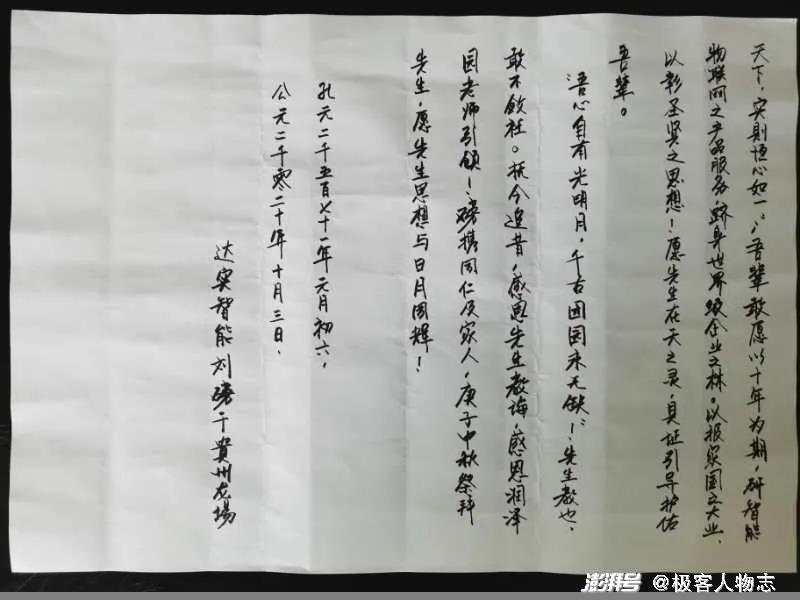 天下，实则恒心如一；吾辈敢愿以十年为期，研智能
物联网之产品服务，跻身世界级企业之林。以报家国之大业，
以彰圣贤之思想！愿先生在天之灵，具证引导护佑
吾辈。
吾心自有光明月，千古团圆永无缺！先生教也，
敢不敛社。抚今追昔，感恩先生教诲，感恩润泽
园老师引领！磅携同仁及家人，庚子中秋祭拜
先生，愿先生思想与日月同辉！
孔元二千五百七十一年元月初六，
公元二千零二十年十月三日，
达实智能刘磅于贵州龙场
澎湃号 @极客人物志